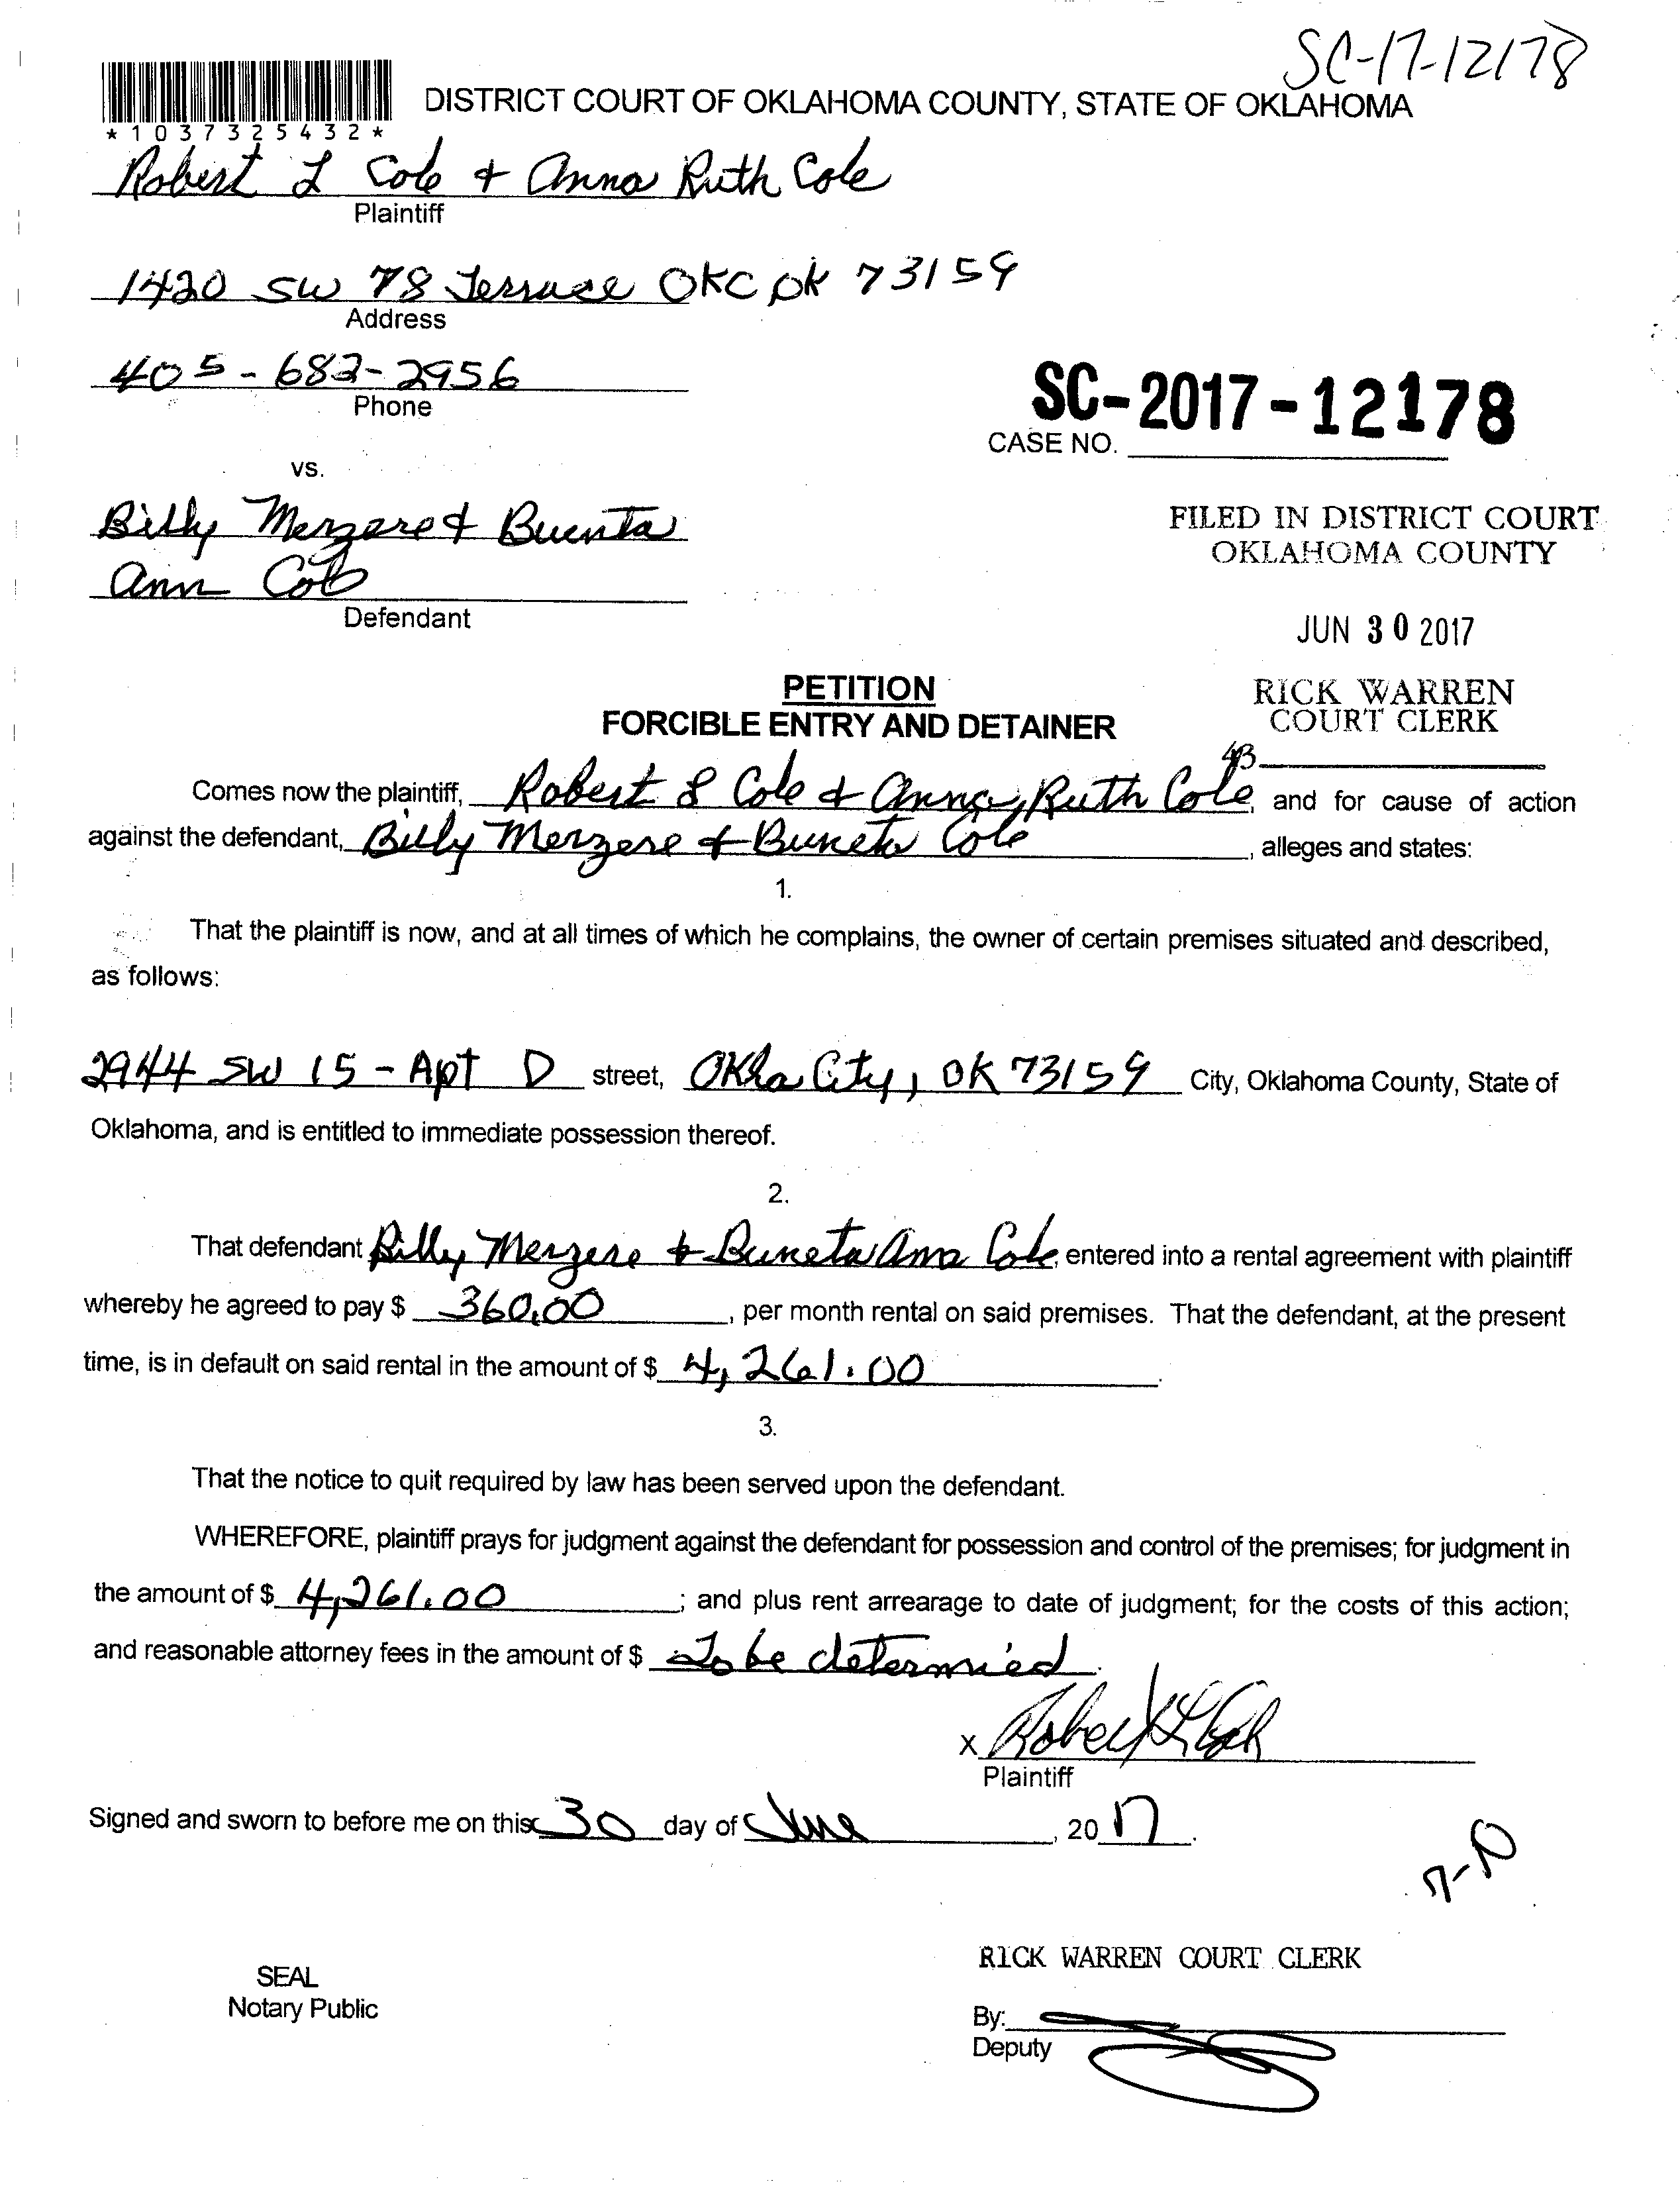 SC-17-12178
DISTRICT COURT OF OKLAHOMA COUNTY, STATE OF OKLAHOMA
*1037325432*
Robert L Cole & Anna Ruth Cole
Plaintiff
1420 SW 78 Terrace OKC OK 73159
Address
405-682-2956
Phone
SC-2017-12178
CASE NO.
vs.
Billy Merzere & Buenta
Ann Cole
Defendant
FILED IN DISTRICT COURT
OKLAHOMA COUNTY
JUN 30 2017
RICK WARREN
COURT CLERK
PETITION
FORCIBLE ENTRY AND DETAINER
Comes now the plaintiff, Robert L Cole & Anna Ruth Cole, and for cause of action
against the defendant, Billy Merzere & Buneta Cole, alleges and states:
1.
That the plaintiff is now, and at all times of which he complains, the owner of certain premises situated and described,
as follows:
2944 SW 15 - Apt D street, Okla City, OK 73159 City, Oklahoma County, State of
Oklahoma, and is entitled to immediate possession thereof.
2.
That defendant Billy Merzere & Buneta Ann Cole, entered into a rental agreement with plaintiff
whereby he agreed to pay $ 360.00, per month rental on said premises. That the defendant, at the present
time, is in default on said rental in the amount of $ 4,261.00.
3.
That the notice to quit required by law has been served upon the defendant.
WHEREFORE, plaintiff prays for judgment against the defendant for possession and control of the premises; for judgment in
the amount of $ 4,261.00; and plus rent arrearage to date of judgment; for the costs of this action;
and reasonable attorney fees in the amount of $ To be determied.
X Robert L Cole
Plaintiff
Signed and sworn to before me on this 30 day of June, 2017.
SEAL
Notary Public
RICK WARREN COURT CLERK
By:
Deputy